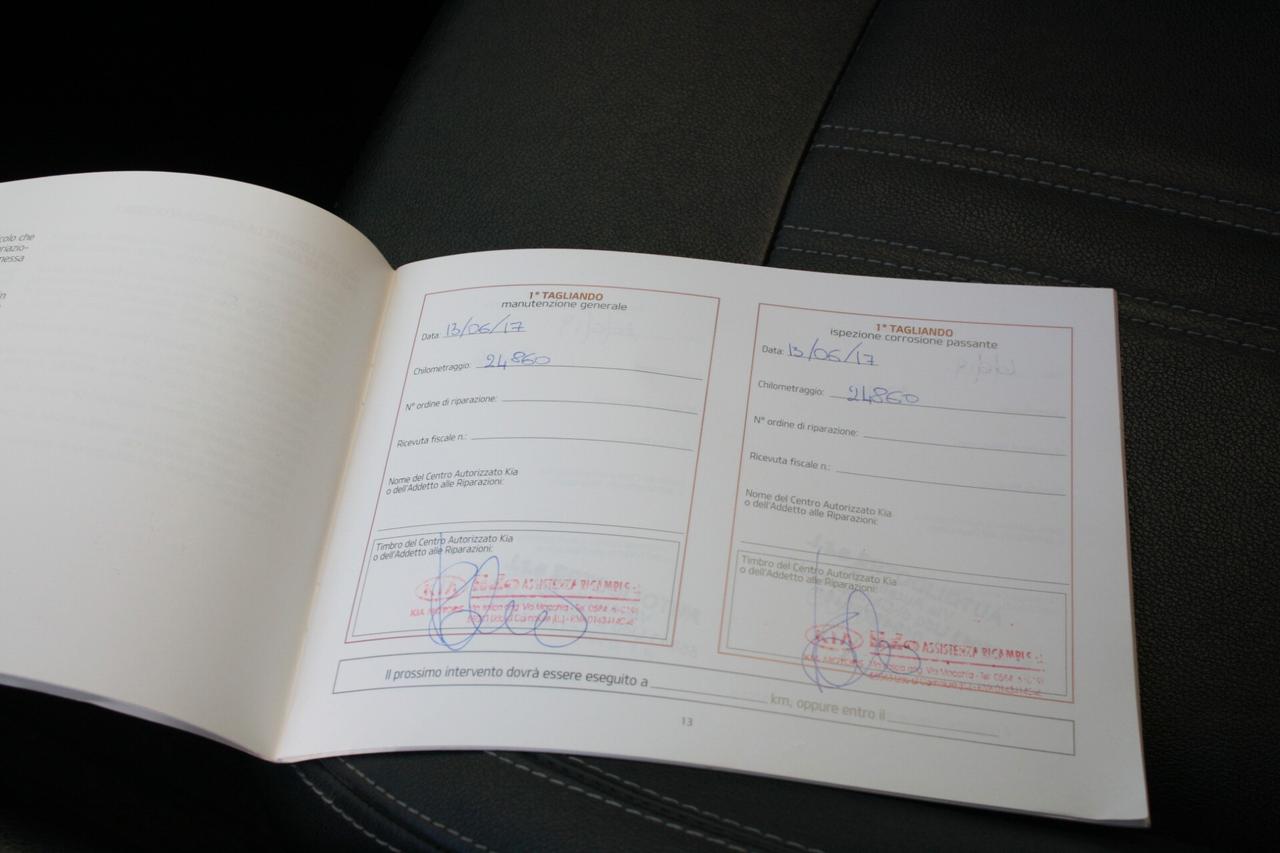 colo che
nessa
1° TAGLIANDO
manutenzione generale
Data: 13/06/17
Chilometraggio: 24860
N° ordine di riparazione:
Ricevuta fiscale n.:
Nome del Centro Autorizzato Kia
o dell'Addetto alle Riparazioni:
Timbro del Centro Autorizzato Kia
o dell'Addetto alle Riparazioni:
KIA ASSISTENZA RICAMBI
KIA MOTORS Via Macchia - Tel. 0584
1° TAGLIANDO
ispezione corrosione passante
Data: 13/06/17
Chilometraggio: 24860
N° ordine di riparazione:
Ricevuta fiscale n.:
Nome del Centro Autorizzato Kia
o dell'Addetto alle Riparazioni:
Timbro del Centro Autorizzato Kia
o dell'Addetto alle Riparazioni:
KIA ASSISTENZA RICAMBI
KIA MOTORS Via Macchia - Tel. 0584
Il prossimo intervento dovrà essere eseguito a km, oppure entro il
13